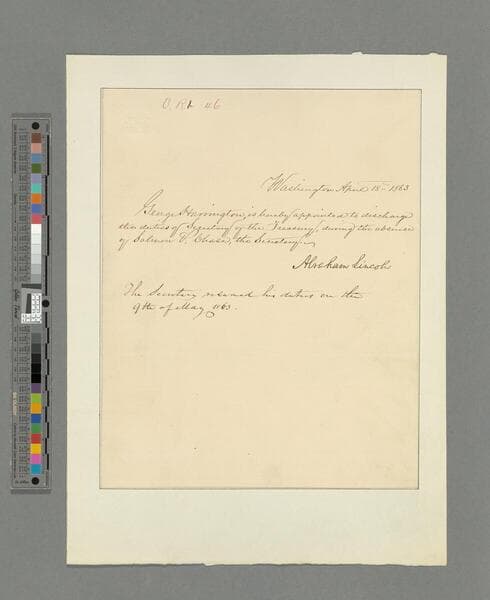 Washington April 18 - 1863
George Harrington, is hereby appointed to discharge
the duties of Secretary of the Treasury, during the absence
of Salmon P. Chase, the Secretary.
Abraham Lincoln
The Secretary resumed his duties on the
9th of May 1863.